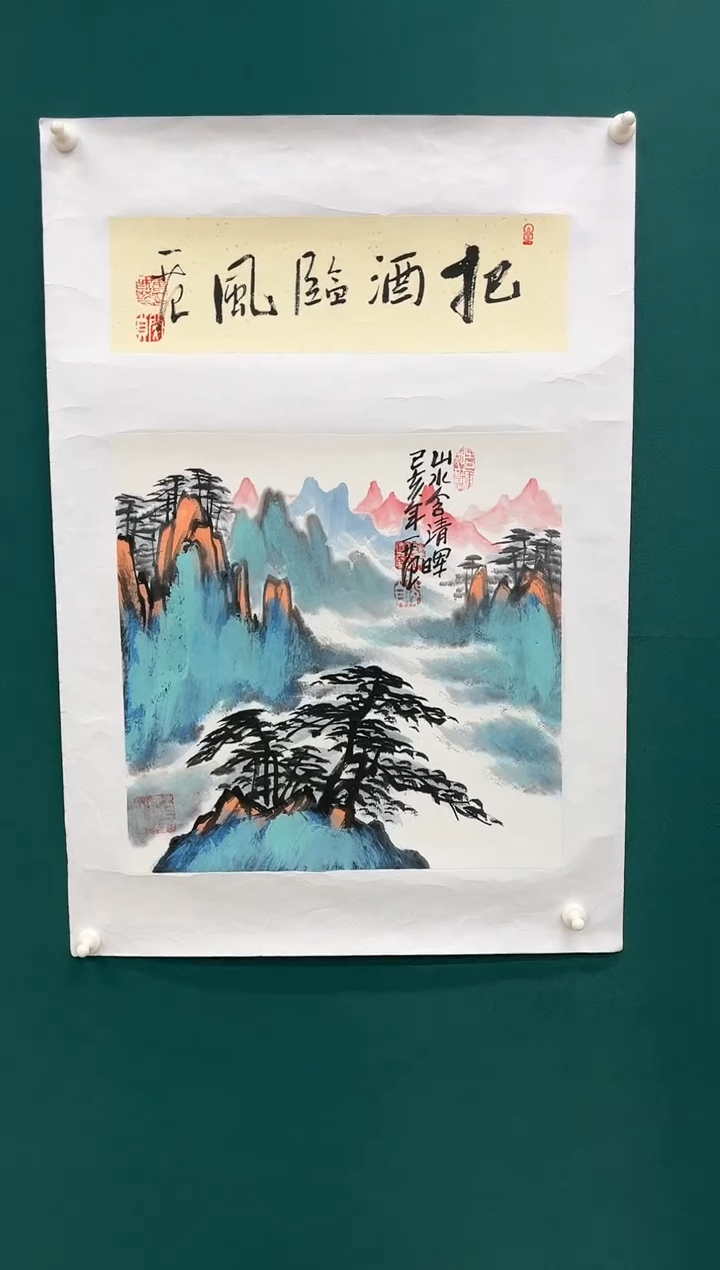 把酒臨風
山水含清暉
己亥年一